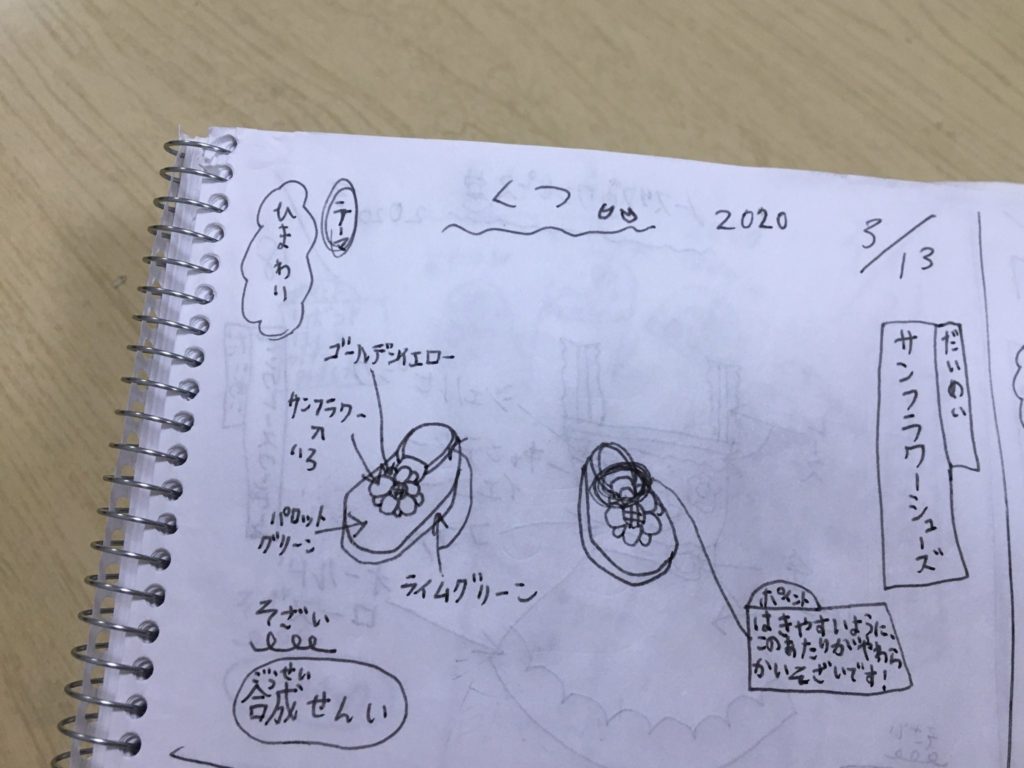 くつ
2020
3/13
テーマ
ひまわり
だいめい
サンフラワーシューズ
ゴールデンイエロー
サンフラワー
いろ
パロット
グリーン
ライムグリーン
そざい
ごうせい
合成せんい
ポイント
はきやすいように、
このあたりがやわら
かいそざいです!